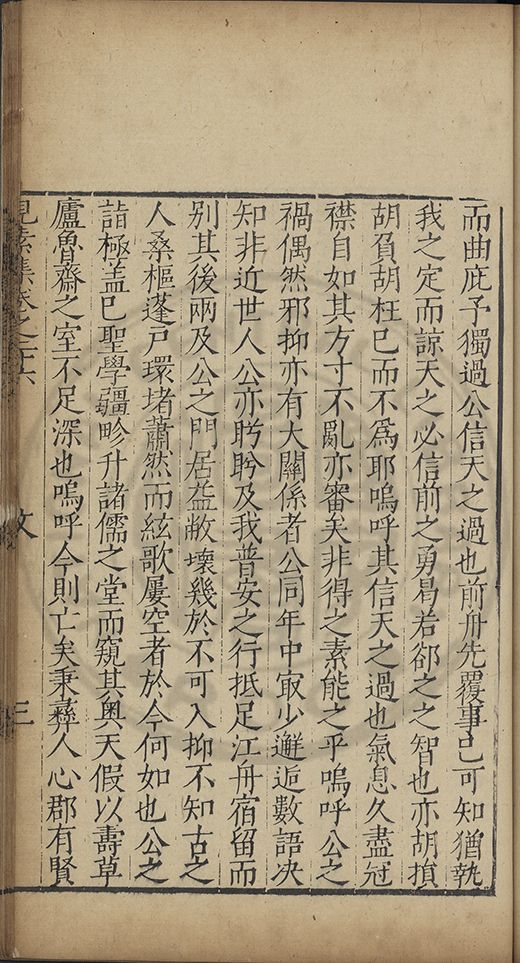 而曲庇予獨過公信天之過也前舟先覆事已可知猶執
我之定而諒天之必信前之勇曷若郤之之智也亦胡損
胡負胡枉已而不爲耶嗚呼其信天之過也氣息久盡冠
襟自如其方寸不亂亦審矣非得之素能之乎嗚呼公之
禍偶然邪抑亦有大關係者公同年中㝡少邂逅數語决
知非近世人公亦盻盻及我普安之行抵足江舟宿留而
别其後兩及公之門居益敝壞幾於不可入抑不知古之
人桑樞蓬戸環堵蕭然而絃歌屢空者於今何如也公之
詣極盖巳聖學疆畛升諸儒之堂而窺其奥天假以壽草
廬魯齋之室不足深也嗚呼今則亡矣秉彝人心郡有賢
見素集卷之二六 文 三